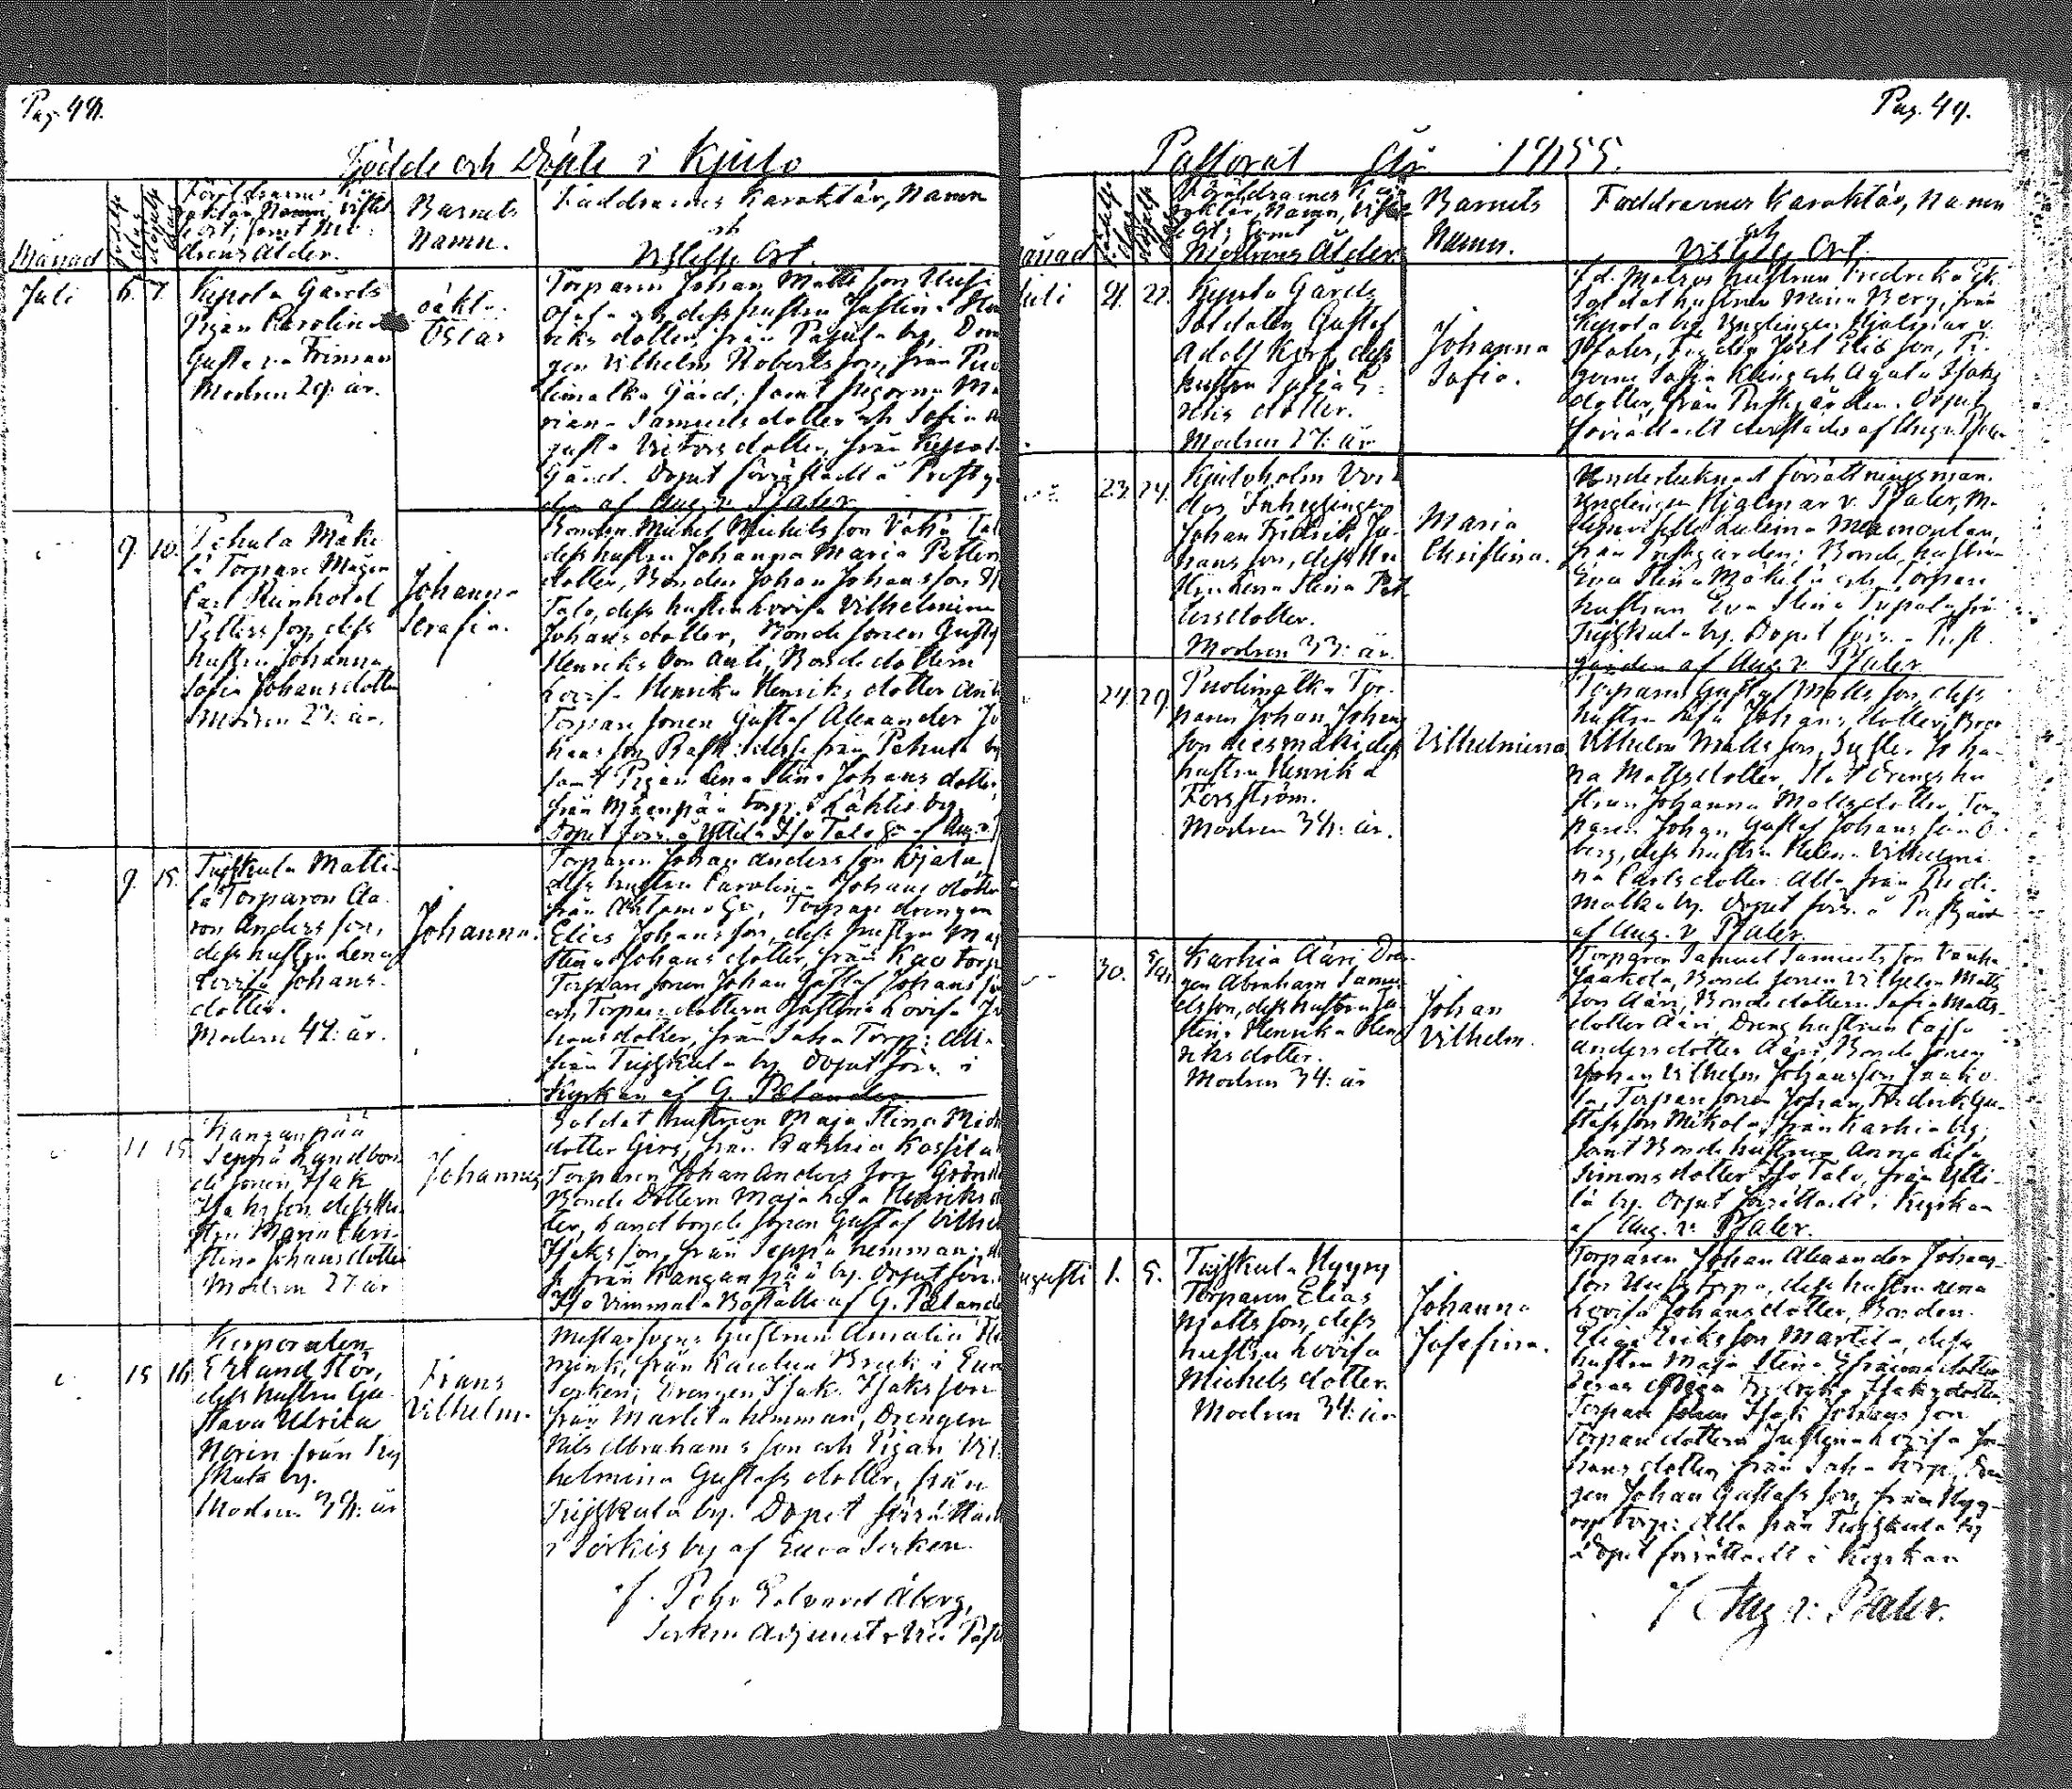 Pag. 48.
Födde och Döpte i Kjulo
Månad
Föräldrarnes Ka-
raktär, Namn, Vistel-
se ort, samt Mo-
drens Ålder.
Barnets
Namn.
Faddrarnes Karaktär, Namn
och
Vistelse Ort.
Juli
6. 7.
Kepola Gårds
Pigan Carolina
Gustava Friman
Modren 29. år.
oäkta
Oscar
Torparen Johan Matts son
och dess hustru Justina Hen
riks dotter, från Pajula by, Dren
gen Vilhelm Roberts son, från Puo
limatka Gård, samt pigorna Ma
riana Samuelsdotter och Sofia Au
gusta Victorsdotter, från Kepola
Gård. Dopet förrättadt å Prestgår
den af Aug. v. Pfaler
9. 10.
Torpare Mågen
Carl Reinhold
Petters son, dess
hustru Johanna
Sofia Johansdotter
Modren 23. år.
Johanna
Serafia.
Bonden Michel Michels son Vähä Talo
dess hustru Johanna Maria Petters
dotter, Bonden Johan Johansson
Talo, dess hustru Lovisa Vilhelmina
Johans dotter, Bonde sonen Gustaf
Henriks son Anti, Bonde dottern
Lovisa Henrika Henriks dotter Anti
Torpare sonen Gustaf Alexander Jo
hans son Rask: desse från Pehula by
samt Pigan Lena Stina Johans dotter
från Mäenpää Torp i Lähtis by.
Dopet förr. å Yttilä Iso Talo af Aug. v.
9. 15.
Tujskula Matti-
la Torparen Aa-
ron Anders son,
dess hustru Lena
Lovisa Johans-
dotter.
Modren 42. år.
Johanna.
Torparen Johan Anders son Ojala,
dess hustru Carolina Johans dotter
från Ahtamo, Torpare drengen
Elias Johans son, dess hustru Maja
Stina Johans dotter, från Kao torp
Torpare sonen Johan Gustaf Johans son
och Torpare dottern Justina Lovisa Jo
hans dotter, från Saha Torp: alla
från Tujskula by. Dopet förr. i
Kyrkan af G. Pælander.
11 15
Kanganpää
Seppä Landbon
de sonen Isak
Isaks son, dess hu
stru Maria Chri-
stina Johans dotter
Modren 27 år
Johannes
Soldat hustrun Maja Stina Mich
dotter Girs, från Karhia Kassila
Torparen Johan Anders son Grönda
Bonde Dottern Maja Lisa Henriks dot
ter, Landbonde sonen Gustaf Vilhelm
Isaks son, från Seppä hemman;
från Kanganpää by. Dopet förr.
Iso Vimmala Boställe af G. Pæland
15 16
Korporalen
Erland Stör,
dess hustru Gu
stava Ulrika
Noren från Tuj
skula by.
Modren 38. år
Frans
Vilhelm.
Mästarsvens hustrun Amalia
från Kauttua Bruk i Eura
Socken; Drengen Isak Isaks son
från Martila hemman, Drengen
Nils Abrahams son och Pigan Vil-
helmina Gustafs dotter, från
Tujskula by. Dopet förrättad
i Sorkis by af Eura Socken
f. Pehr Edvard Åberg,
Sockne Adjunct
Pag. 49.
Pastorat År 1855.
Månad
Föräldrarnes Ka-
raktär, Namn, Vistel-
se Ort, samt
Modrens Ålder
Barnets
Namn.
Faddrarnes Karaktär, Namn
och
Vistelse Ort.
Juli
21. 22.
Kepola Gårds
Soldaten Gustaf
Adolf Korf, dess
hustru Sofia E-
lias dotter.
Modren 27. år
Johanna
Sofia.
f.d. hustrun Fredrika Ek
Soldat hustrun Maria Berg, från
Kepola by, Ynglingen Hjalmar v.
Pfaler, Joel Elis son, Pi-
gorna Sofia Kling och Agata Isaks
dotter, från Prestgården. Dopet
förrättadt derstädes af Aug. v. Pfaler
23. 24.
Kjuloholm
Inhyslingen
Johan Fredrik Jo-
hans son, dess hu
stru Lena Stina Pet
tersdotter.
Modren 33. år.
Maria
Christina.
Undertecknad förrättningsman.
Ynglingen Hjalmar v. Pfaler, Ma-
från Prestgården; Bonde hustrun
Eva Stina Mäkilä och Torpare
hustrun Eva Stina Tupala från
Tujskula by. Dopet förr. å Prest-
gården af Aug. v. Pfaler
24. 29.
Puolimatka Tor-
paren Johan Johans
son Liesmäki, dess
hustru Henrika
Forsström.
Modren 38. år.
Vilhelmina
Torparen Gustaf Matts son, dess
hustru Lisa Johans dotter; Bror
Vilhelm Matts son, Syster Johan-
na Mattsdotter, Statdrengs hu
strun Johanna Mattsdotter, Tor-
paren Johan Gustaf Johans son
berg, dess hustru Helena Vilhelmi
na Carls dotter: Alla från Puoli-
matka by. Dopet förr. å Prestgård
af Aug. v. Pfaler.
30. 5/8.
Karhia Ääri Dren-
gen Abraham Samu-
els son, dess hustru Ju-
stina Henrika Hen
riks dotter.
Modren 34. år
Johan
Vilhelm.
Torparen Samuel Samuels son Vanha
Jaakola, Bonde sonen Vilhelm Matts
son Ääri, Bonde dottern Sofia Matts-
dotter Ääri, Dreng hustrun Cajsa
Anders dotter Ääri, Bonde sonen
Johan Vilhelm Johans son Jaako-
la, Torpare sonen Johan Fredrik Gu-
stafs son Mikola, från Karhia by;
samt Bonde hustrun Anna Lisa
Simons dotter Iso Talo, från Ytti-
lä by. Dopet förrättadt i Kyrkan
af Aug. v. Pfaler.
Augusti
1. 5.
Tujskula Nygry
Torparen Elias
Matts son, dess
hustru Lovisa
Michels dotter.
Modren 34. år
Johanna
Josefina.
Torparen Johan Alexander Johans-
son Uusitorpa, dess hustru Lena
Lovisa Johans dotter, Bonden
Elias Eriks son Martila, dess
hustru Maja Stina Efraims dotter
deras Piga Fredrika Isaks dotter
Torpare sonen Isak Johans son
Torpare dottern Justina Lovisa Jo-
hans dotter, från Saha torp; Dren
gen Johan Gustafs son, från Nyg-
ry Torp: Alla från Tujskula by
Dopet förrättadt i Kyrkan
f Aug v. Pfaler.